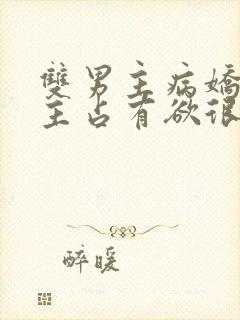 雙男主病嬌
主占有欲很
醉暖